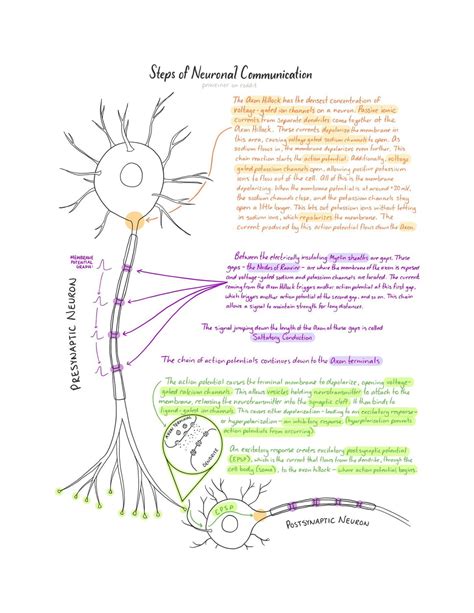 Steps of Neuronal Communication
on reddit
The Axon Hillock has the densest concentration of
voltage-gated ion channels on a neuron. Passive ionic
currents from separate dendrites come together at the
Axon Hillock. These currents depolarize the membrane in
this area, causing voltage gated sodium channels to open. As
sodium flows in, the membrane depolarizes even further. This
chain reaction starts the action potential. Additionally, voltage
gated potassium channels open, allowing positive potassium
ions to flow out of the cell. All of this is the membrane
depolarizing. When the membrane potential is at around +20mV,
the sodium channels close, and the potassium channels stay
open a little longer. This lets out potassium ions without letting
in sodium ions, which repolarizes the membrane. The
current produced by this action potential flows down the Axon.
MEMBRANE
POTENTIAL
GRAPH:
Between the electrically insulating Myelin sheaths are gaps. These
gaps - the Nodes of Ranvier - are where the membrane of the axon is exposed
and voltage-gated sodium and potassium channels are located. The current
coming from the Axon Hillock triggers another action potential at this first gap,
which triggers another action potential at the second gap, and so on. This chain
allows a signal to maintain strength for long distances.
PRESYNAPTIC NEURON
The signal jumping down the length of the Axon of these gaps is called
Saltatory Conduction
The chain of action potentials continues down to the Axon terminals
The action potential causes the terminal membrane to depolarize, opening voltage-
gated calcium channels. This allows vesicles holding neurotransmitter to attach to the
membrane, releasing neurotransmitter into the synaptic cleft. It then binds to
ligand-gated ion channels. This causes other depolarization - leading to an excitatory response -
or hyperpolarization - an inhibitory response. (hyperpolarization prevents
action potentials from occurring).
AXON TERMINAL
DENDRITE
An excitatory response creates excitatory postsynaptic potential
(EPSP), which is the current that flows from the dendrite, through the
cell body (soma), to the axon hillock - where action potential begins.
EPSP
POSTSYNAPTIC NEURON